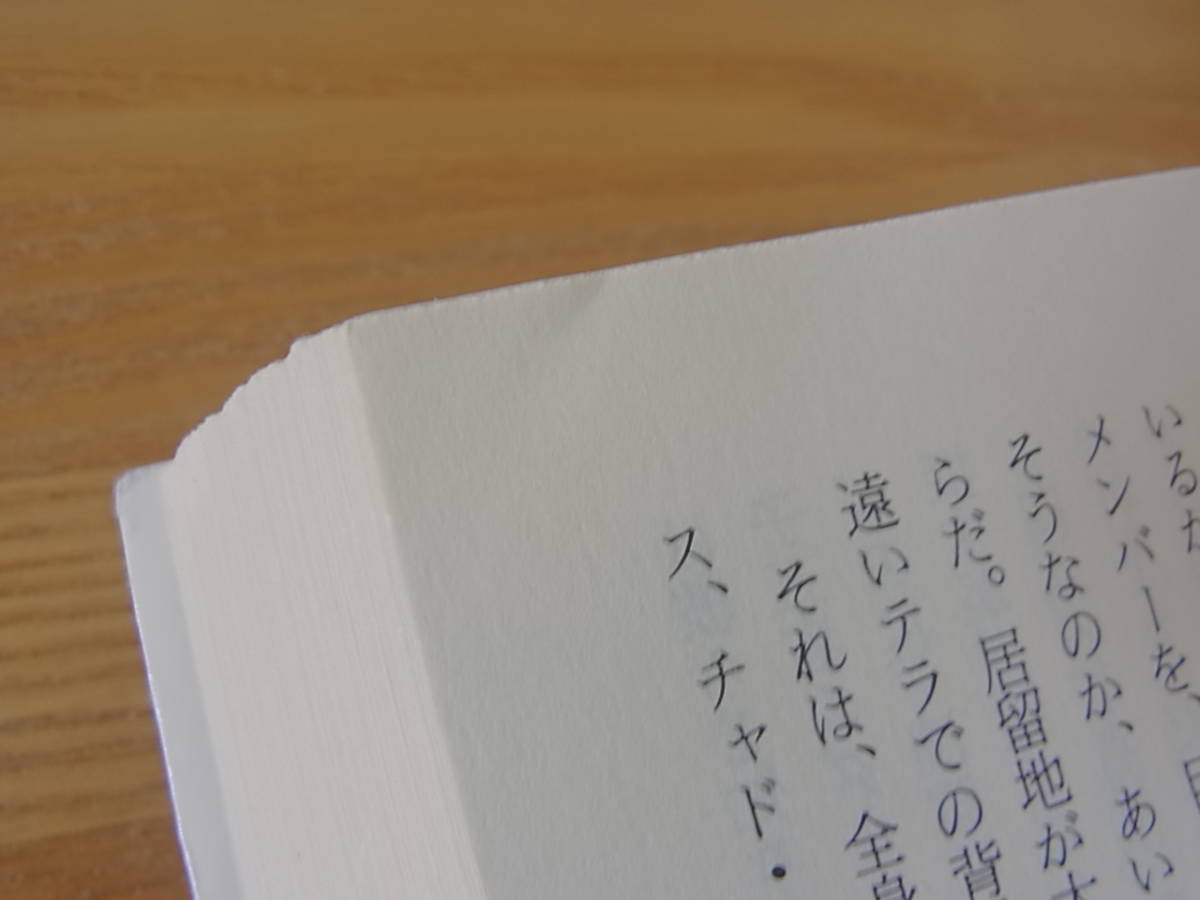 いる
メンバーを、
そうなのか、あい
らだ。居留地が
遠いテラでの背
それは、全
ス、チャド・